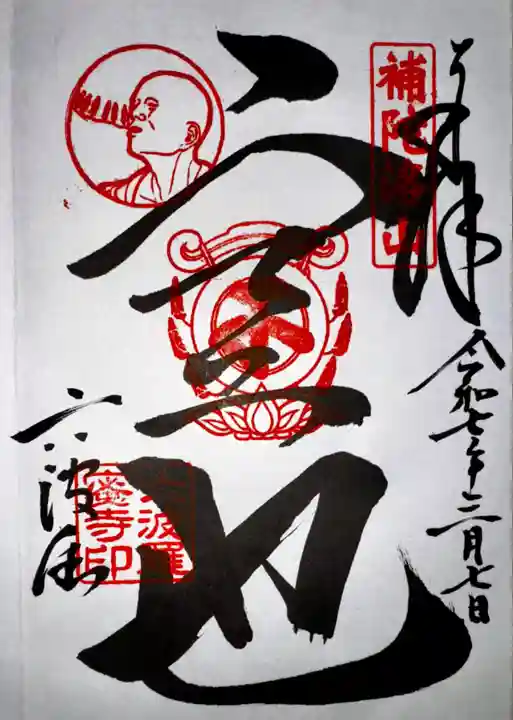 奉拝
令和七年三月七日
補陀洛山
空也
六波羅
六波羅
蜜寺印